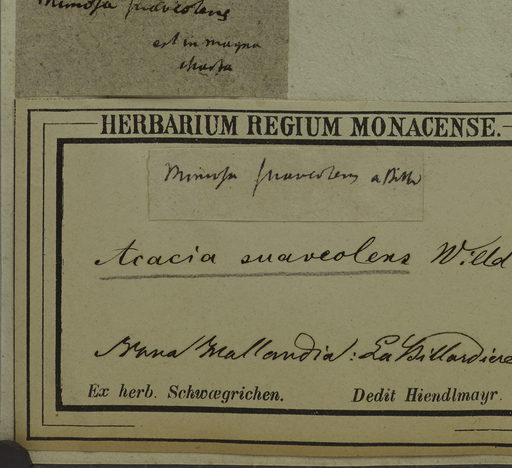 Mimosa suaveolens
est in magna
charta
HERBARIUM REGIUM MONACENSE.
Mimosa suaveolens a Bill
Acacia suaveolens Willd
Nova Hollandia: La Billardiere
Ex herb. Schwægrichen. Dedit Hiendlmayr.